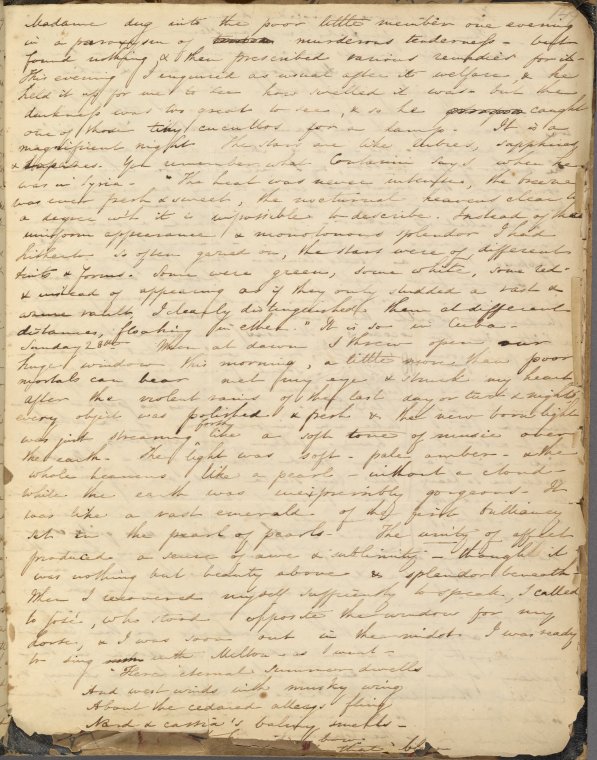 Madame dug into the poor little member one evening
in a paroxysm of murderous tenderness - but
found nothing & then prescribed various remedies for it -
This evening I enquired as usual after its welfare, & he
held it up for me to see how swelled it was. but the
darkness was too great to see, & so he caught
one of those tiny cucullos for a lamp. It is a
magnificent night. The stars are like rubies, sapphires
& topazes. You remember what Contarini says when he
was in Syria - "The heat was never intense, the breeze
was ever fresh & sweet, the nocturnal heavens clear to
a degree wh it is impossible to describe. Instead of that
uniform appearance & monotonous splendor I had
hitherto so often gazed on, the stars were of different
tints & forms. Some were green, some white, some red -
& instead of appearing as if they only studded a vast &
azure vault, I clearly distinguished them at different
distances, floating in ether." It is so in Cuba -
Sunday 28th When at dawn I threw open our
huge window this morning, a little more than poor
mortals can bear met my eye & struck my heart
after the violent rains of the last day or two & nights
every object was polished & fresh & the new born light
was just streaming forth like a soft tone of music over
the earth. The light was soft - pale amber - & the
whole heavens like a pearl - without a cloud
while the earth was inexpressibly gorgeous. It
was like a vast emerald of the first brilliancy -
set in the pearl of pearls - The unity of effect
produced a sense of awe & sublimity - though it
was nothing but beauty above & splendor beneath
When I recovered myself sufficiently to speak, I called
to José, who stood opposite the window for my
horse, & I was soon out in the midst. I was ready
to sing with Milton as I went -
"Here eternal Summer dwells
And west winds with musky wing
About the cedared alleys fling
Nard & cassia's balmy smells -
bow
that blow